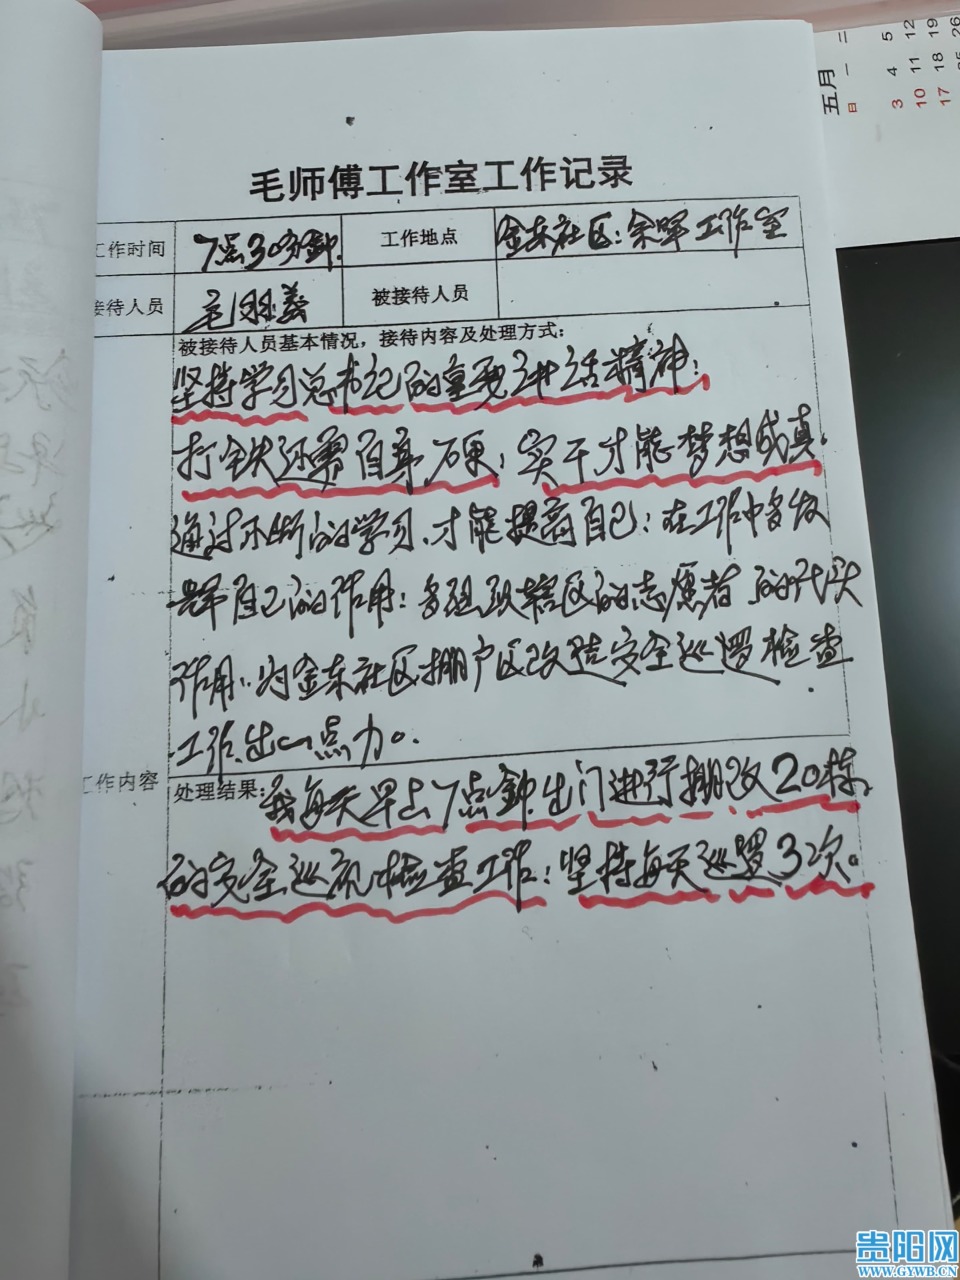 五月
日 一 二
3 4 5
10 11 12
17 18 19
26
毛师傅工作室工作记录
工作时间 7点30分鈡. 工作地点 金东社区:余晖工作室
接待人员 毛 義 被接待人员
被接待人员基本情况，接待内容及处理方式：
坚持学习总书记的重要讲话精神:
打铁还需自身硬:实干才能梦想成真.
通过不断的学习.才能提高自己:在工作中多发
挥自己的作用:多组织辖区的志愿者的代头
作用:为金东社区棚户区改造安全巡逻检查
工作出一点力。
工作内容
处理结果: 我每天早上7点鈡出门进行棚改20栋
的安全巡视检查工作:坚持每天巡逻3次。
贵阳网
WWW.GYWB.CN